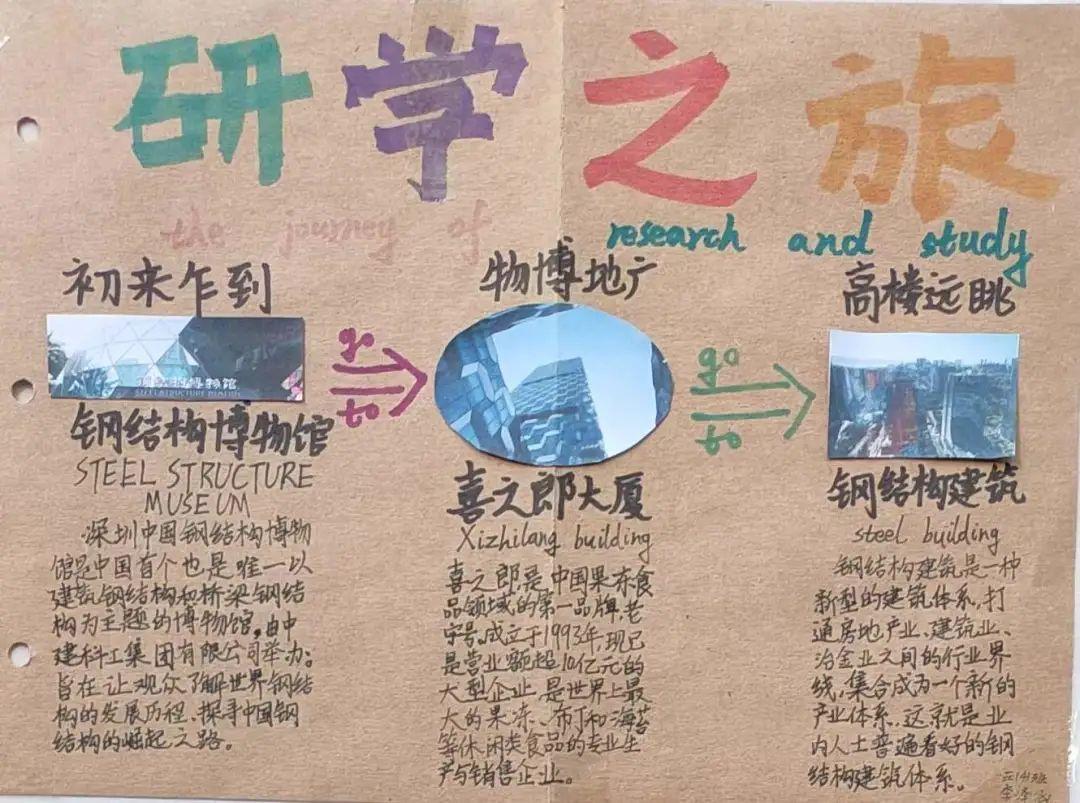 研学之旅
the journey of research and study
初来乍到
钢结构博物馆
STEEL STRUCTURE
MUSEUM
深圳中国钢结构博物
馆是中国首个也是唯一以
建筑钢结构和桥梁钢结
构为主题的博物馆,由中
建科工集团有限公司举办。
旨在让观众了解世界钢结
构的发展历程、探寻中国钢
结构的崛起之路。
go
to
物博地产
喜之郎大厦
Xizhilang building
喜之郎是中国果冻食
品领域的第一品牌,老
字号。成立于1993年,现已
是营业额超10亿元的
大型企业,是世界上最
大的果冻、布丁和海苔
等休闲类食品的专业生
产与销售企业。
go
to
高楼远眺
钢结构建筑
steel building
钢结构建筑是一种
新型的建筑体系,打
通房地产业、建筑业、
冶金业之间的行业界
线,集合成为一个新的
产业体系,这就是业
内人士普遍看好的钢
结构建筑体系。